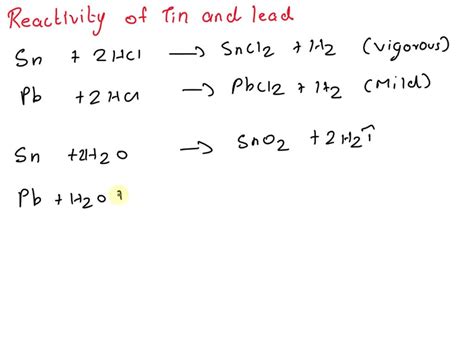 Reactivity of Tin and lead
Sn + 2HCl → SnCl2 + H2 (vigorous)
Pb + 2HCl → PbCl2 + H2 (Mild)
Sn + 2H2O → SnO2 + 2H2↑
Pb + H2O